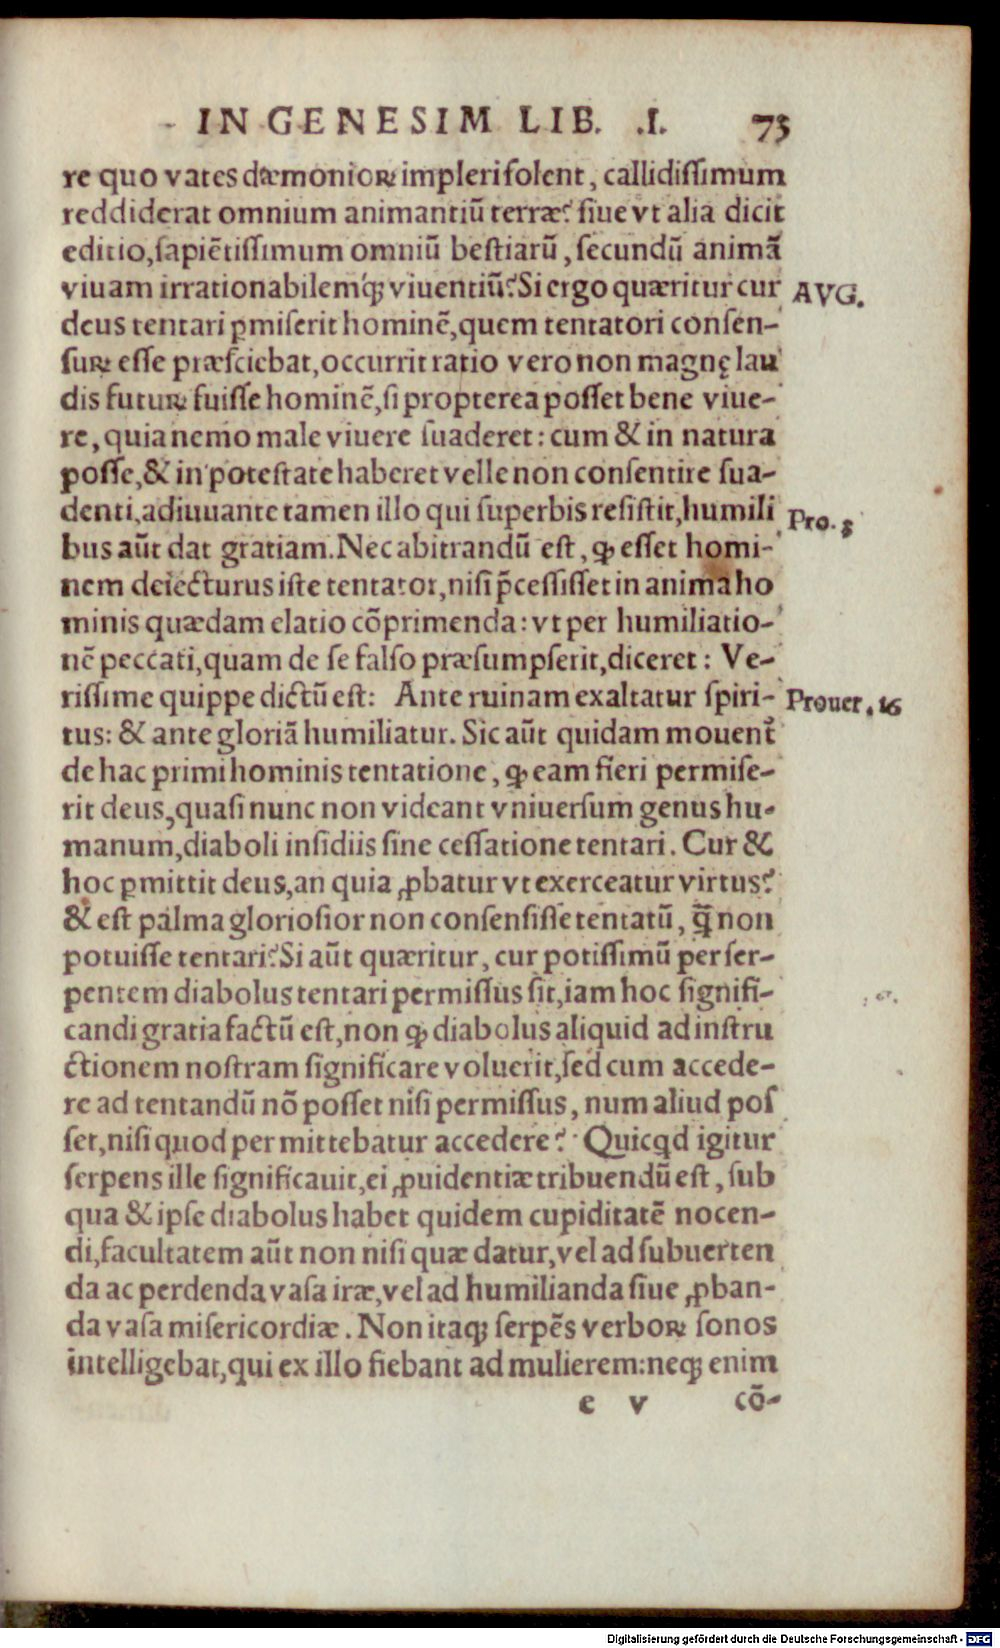 IN GENESIM LIB. .I. 73
re quo vates dæmonioꝝ impleri solent, callidissimum
reddiderat omnium animantiũ terræ? siue vt alia dicit
editio, sapiẽtissimum omniũ bestiarũ, secundũ animã
viuam irrationabilemq́ꝫ viuentiũ? Si ergo quæritur cur
AVG.
deus tentari ꝑmiserit hominẽ, quem tentatori consen-
suꝝ esse præsciebat, occurrit ratio vero non magnę lau
dis futuꝝ fuisse hominẽ, si propterea posset bene viue-
re, quia nemo male viuere suaderet: cum & in natura
posse, & in potestate haberet velle non consentire sua-
denti, adiuuante tamen illo qui superbis resistit, humili
Pro. 3
bus aũt dat gratiam. Nec abitrandũ est, ꝙ esset homi-
nem deiecturus iste tentator, nisi p̃cessisset in anima ho
minis quædam elatio cõprimenda: vt per humiliatio-
nẽ peccati, quam de se falso præsumpserit, diceret: Ve-
rissime quippe dictũ est: Ante ruinam exaltatur spiri-
Prouer. 16
tus: & ante gloriã humiliatur. Sic aũt quidam mouent᷑
de hac primi hominis tentatione, ꝙ eam fieri permise-
rit deus, quasi nunc non videant vniuersum genus hu-
manum, diaboli insidiis sine cessatione tentari. Cur &
hoc ꝑmittit deus, an quia ꝓbatur vt exerceatur virtus?
& est palma gloriosior non consensisse tentatũ, q̃̃ non
potuisse tentari? Si aũt quæritur, cur potissimũ per ser-
pentem diabolus tentari permissus sit, iam hoc signifi-
candi gratia factũ est, non ꝙ diabolus aliquid ad instru
ctionem nostram significare voluerit, sed cum accede-
re ad tentandũ nõ posset nisi permissus, num aliud pos
set, nisi quod permittebatur accedere? Quicꝗd igitur
serpens ille significauit, ei ꝓuidentiæ tribuendũ est, sub
qua & ipse diabolus habet quidem cupiditatẽ nocen-
di, facultatem aũt non nisi quæ datur, vel ad subuerten
da ac perdenda vasa iræ, vel ad humilianda siue ꝓban-
da vasa misericordiæ. Non itaqꝫ serpẽs verboꝝ sonos
intelligebat, qui ex illo fiebant ad mulierem: neqꝫ enim
e v cõ-
Digitalisierung gefördert durch die Deutsche Forschungsgemeinschaft - DFG